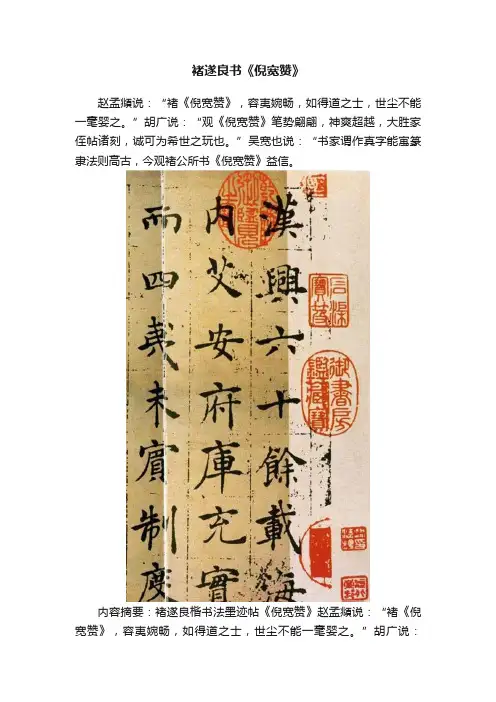 褚遂良书《倪宽赞》
赵孟頫说：“褚《倪宽赞》，容夷婉畅，如得道之士，世尘不能
一毫婴之。”胡广说：“观《倪宽赞》笔势翩翩，神爽超越，大胜家
侄帖诸刻，诚可为希世之玩也。”吴宽也说：“书家谓作真字能寓篆
隶法则高古，今观褚公所书《倪宽赞》益信。
漢興六十餘載海
内艾安府庫充實
而四夷未賓制度
石渠寶笈
御書房鑑藏寶
内容摘要：褚遂良楷书法墨迹帖《倪宽赞》赵孟頫说：“褚《倪
宽赞》，容夷婉畅，如得道之士，世尘不能一毫婴之。”胡广说：